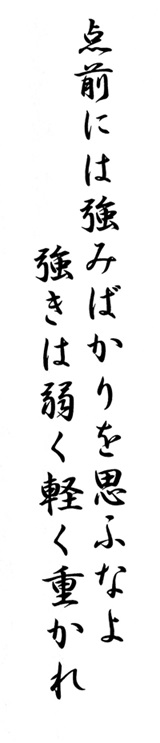 点前には強みばかりを思ふなよ
強きは弱く軽く重かれ